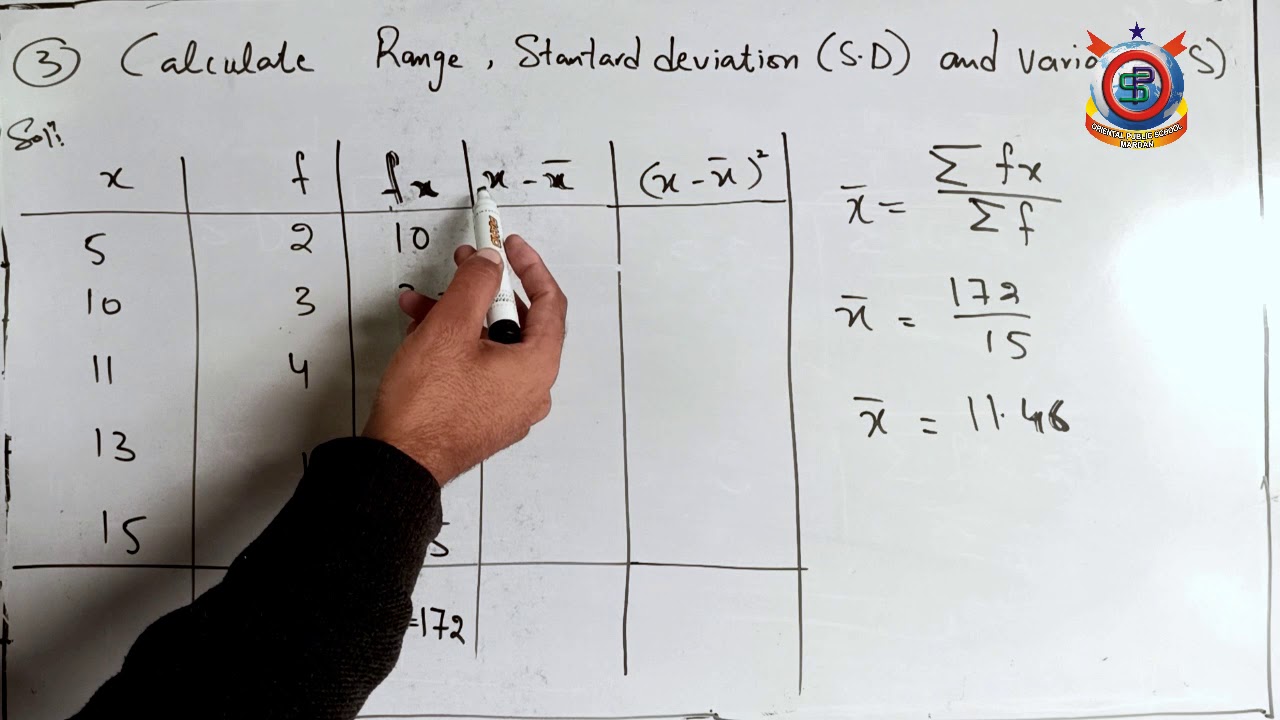 ③ Calculate Range, Stantard deviation (S.D) and Vario S)
Sol:
x f fx x - x̄ (x - x̄)²
5 2 10
10 3
11 4
13
15 5
=172
x̄ = Σfx / Σf
x̄ = 172 / 15
x̄ = 11.46
ORIENTAL PUBLIC SCHOOL
MARDAN